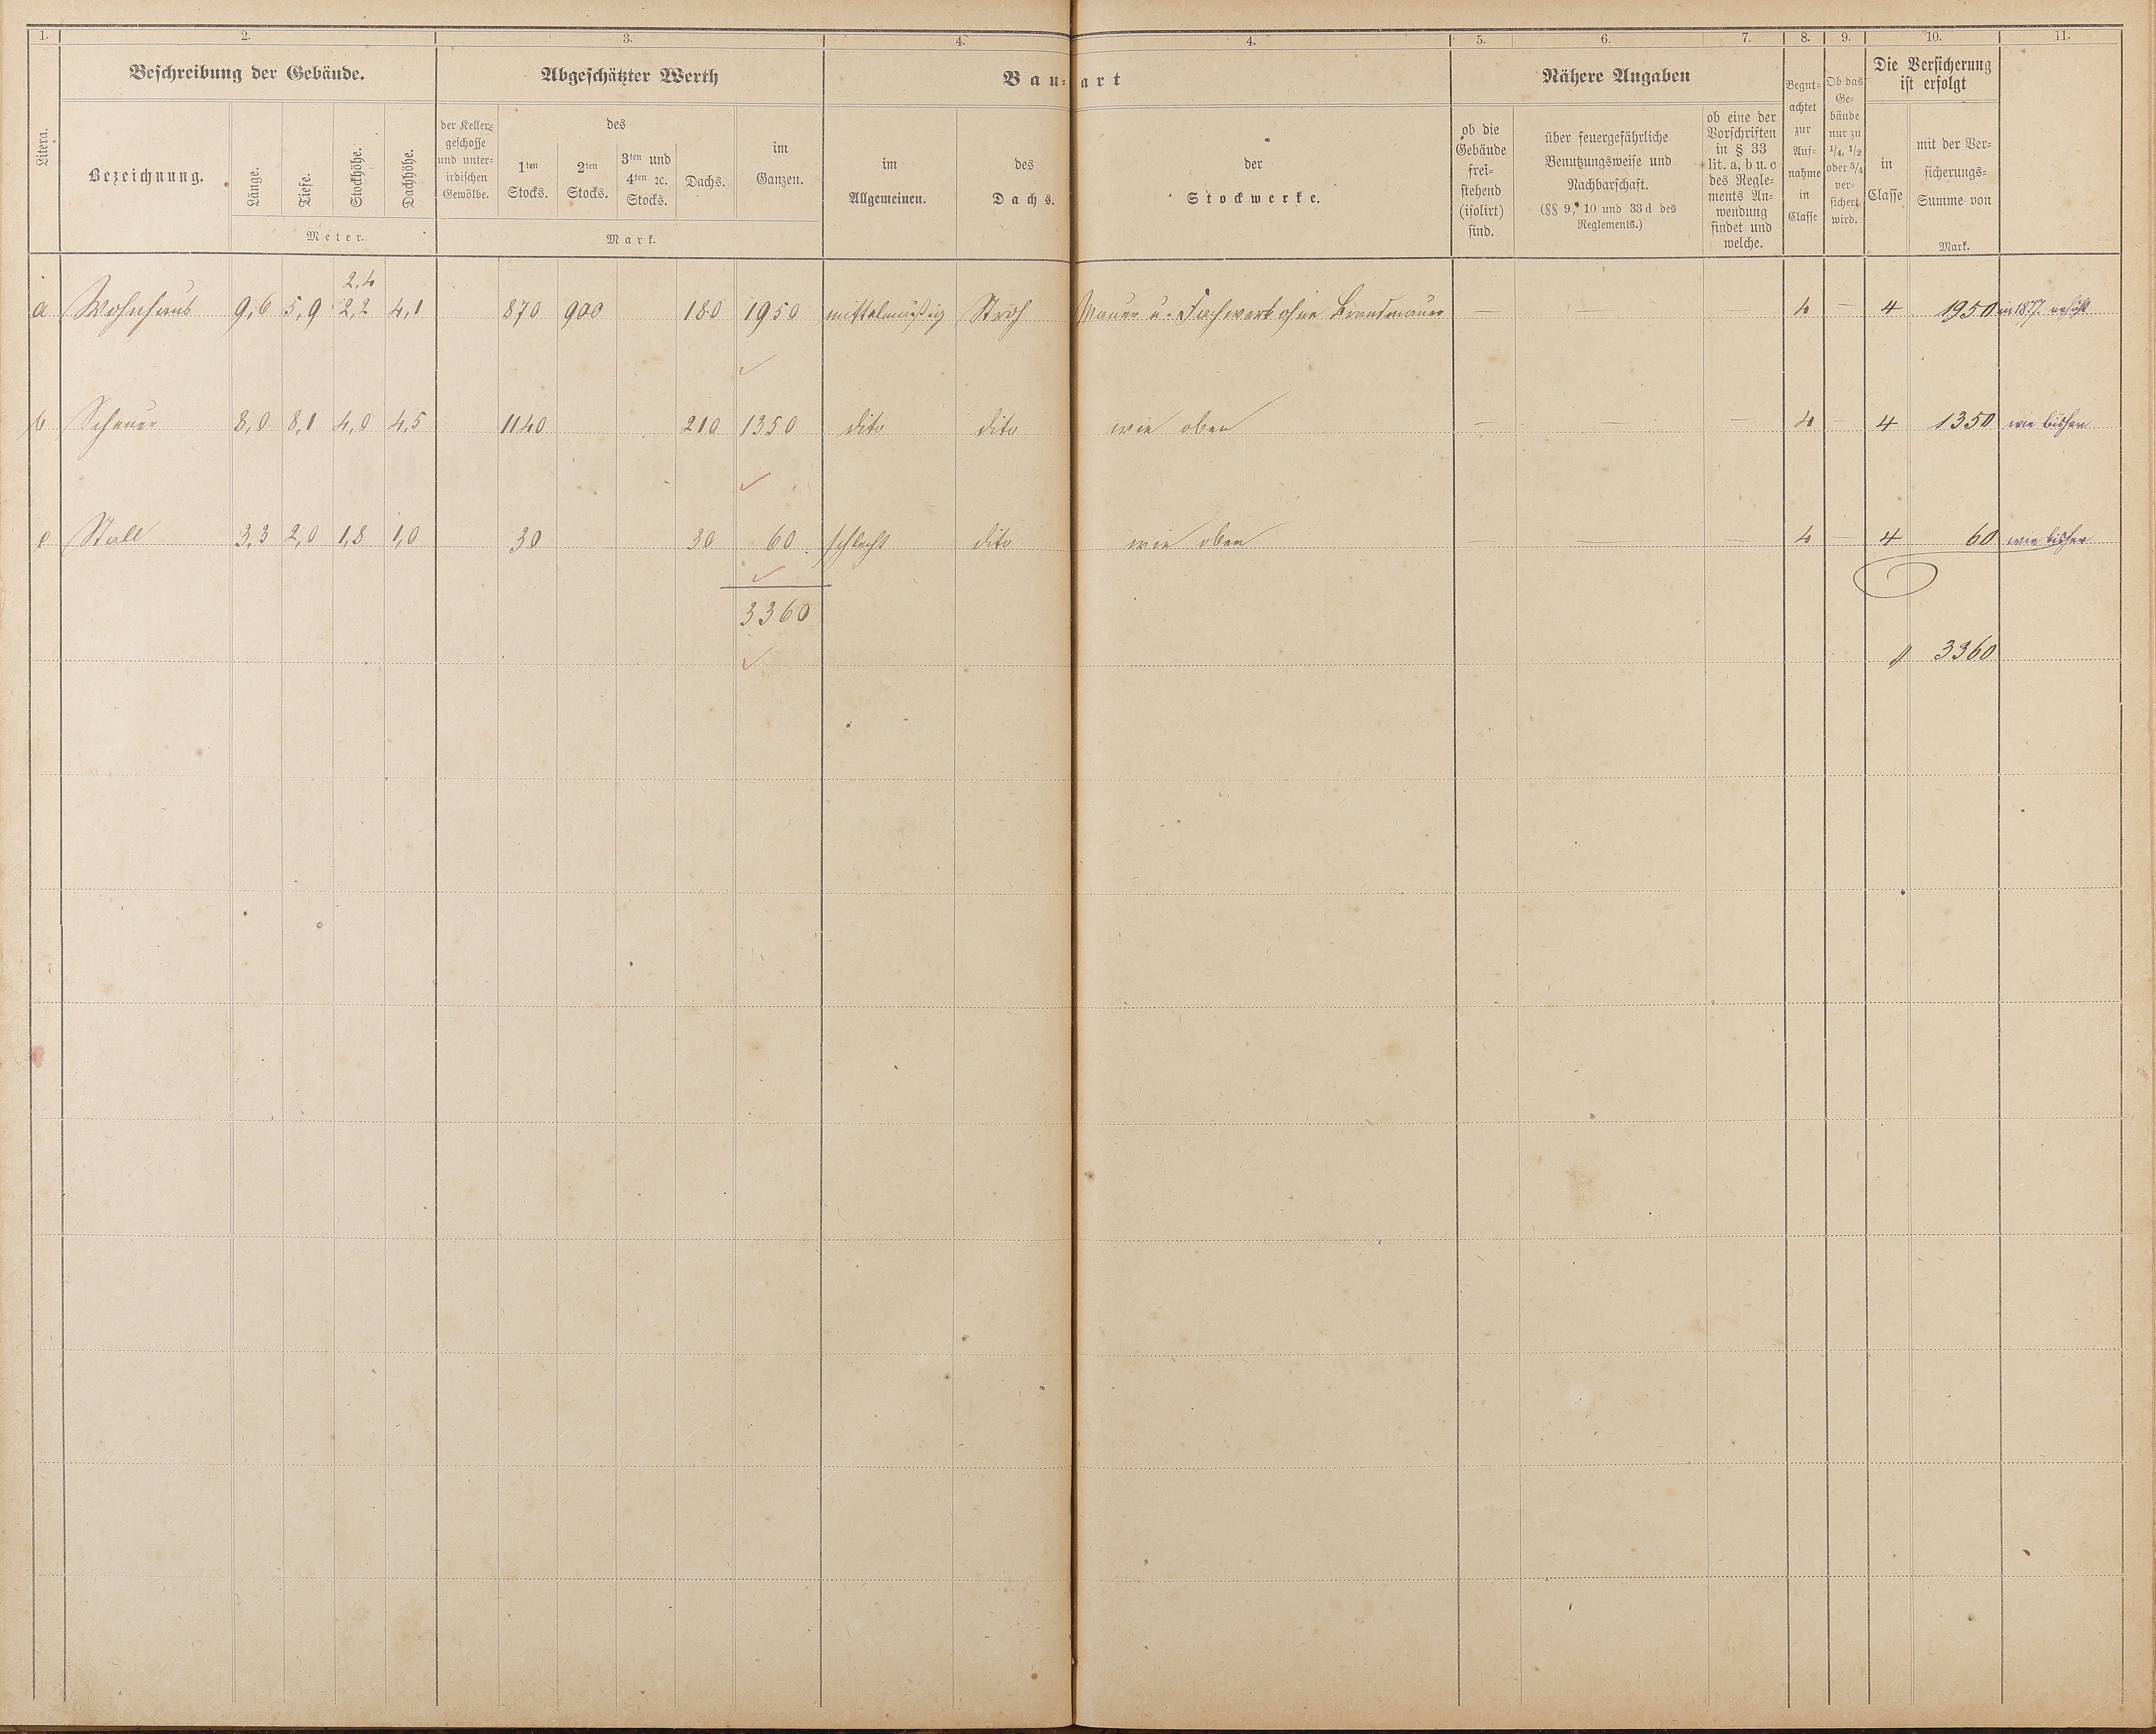 1. 2. 3. 4. 4. 5. 6. 7. 8. 9. 10. 11.
Litera.
Beschreibung der Gebäude.
Bezeichnung.
Länge.
Tiefe.
Stockhöhe.
Dachhöhe.
Meter.
Abgeschätzter Werth
der Keller-
geschosse
und unter-
irdischen
Gewölbe.
des
1ten
Stocks.
2ten
Stocks.
3ten und
4ten ꝛc.
Stocks.
Dachs.
im
Ganzen.
Mark.
Bau-art
im
Allgemeinen.
des
Dachs.
der
Stockwerke.
Nähere Angaben
ob die
Gebäude
frei-
stehend
(isolirt)
sind.
über feuergefährliche
Benutzungsweise und
Nachbarschaft.
(§§ 9, 10 und 33 d des
Reglements.)
ob eine der
Vorschriften
in § 33
lit. a, b u. c
des Regle-
ments An-
wendung
findet und
welche.
Begut-
achtet
zur
Auf-
nahme
in
Classe
Ob das
Ge-
bäude
nur zu
1/4, 1/2
oder 3/4
ver-
sichert
wird.
Die Versicherung
ist erfolgt
in
Classe
mit der Ver-
sicherungs-
Summe von
Mark.
2,4
a Wohnhaus 9,6 5,9 2,2 4,1 870 900 180 1950 mittelmäßig Stroh Mauer u. Fachwerk ohne Brandmauer — — — 4 — 4 1950 in 1877. erhöht
b Scheuer 8,0 8,1 4,0 4,5 1140 210 1350 dito dito wie oben — — — 4 — 4 1350 wie bisher
c Stall 3,3 2,0 1,8 1,0 30 30 60 schlecht dito wie oben — — — 4 — 4 60 wie bisher
3360
3360